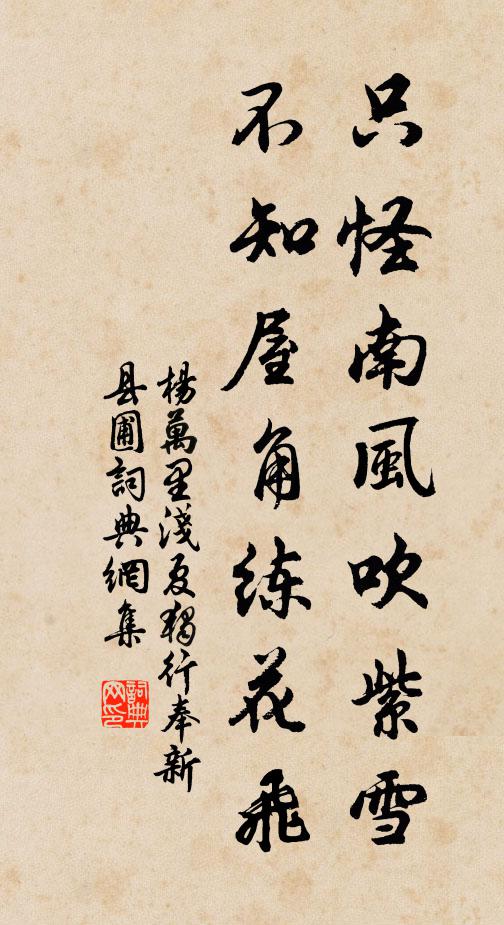 只怪南風吹紫雪
不知屋角練花飛
楊萬里淺夏獨行奉新
县圃詞典網集
詞典
网印